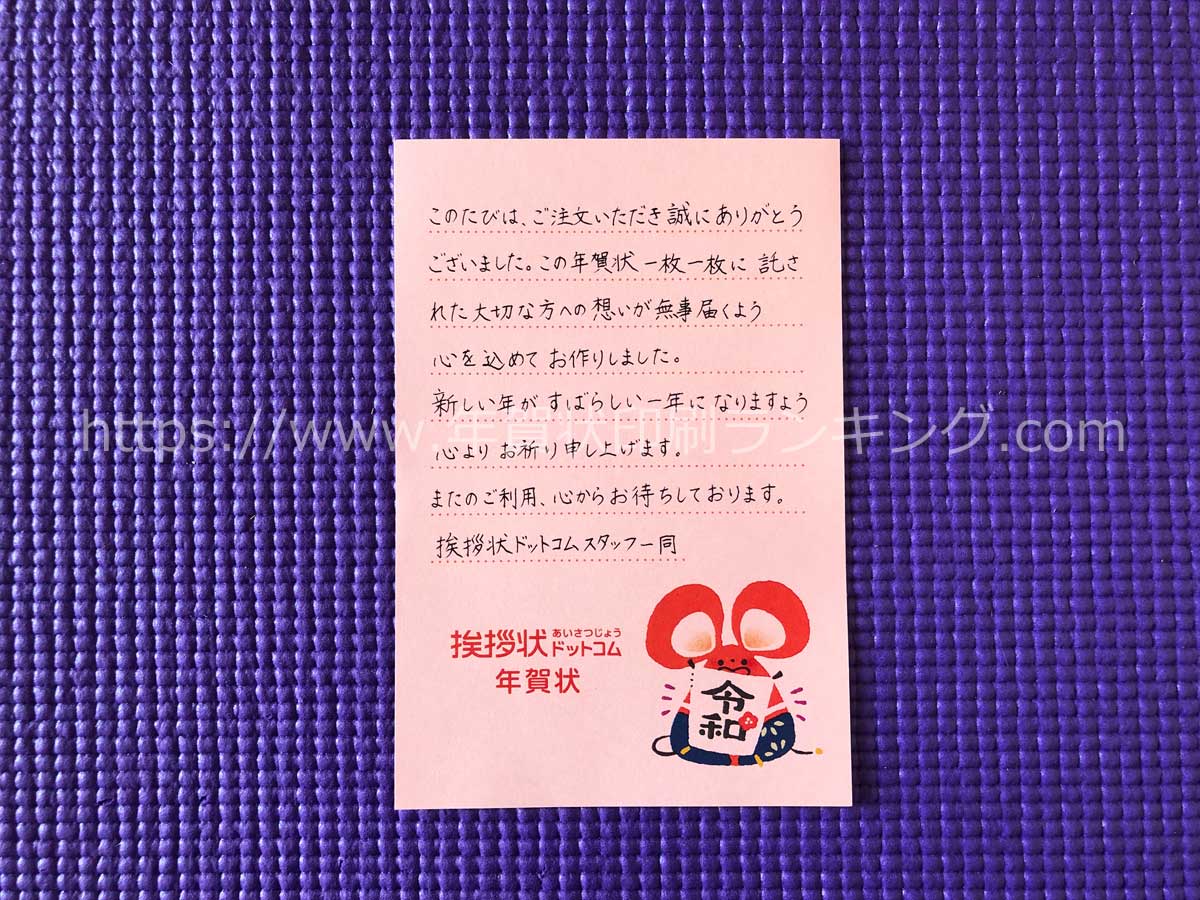 このたびは、ご注文いただき誠にありがとう
ございました。この年賀状一枚一枚に託さ
れた大切な方への想いが無事届くよう
心を込めてお作りしました。
新しい年がすばらしい一年になりますよう
https://www.年賀状印刷ランキング.com
心よりお祈り申し上げます。
またのご利用、心からお待ちしております。
挨拶状ドットコムスタッフ一同
挨拶状ドットコム
あいさつじょう
年賀状
令和